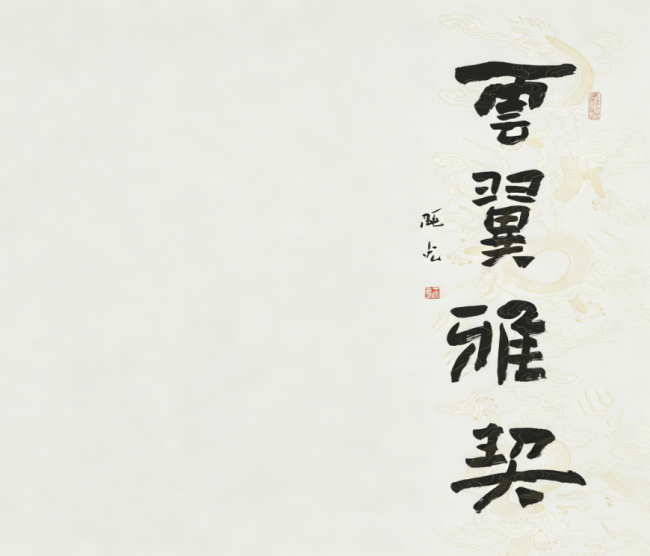 雲翼雅契